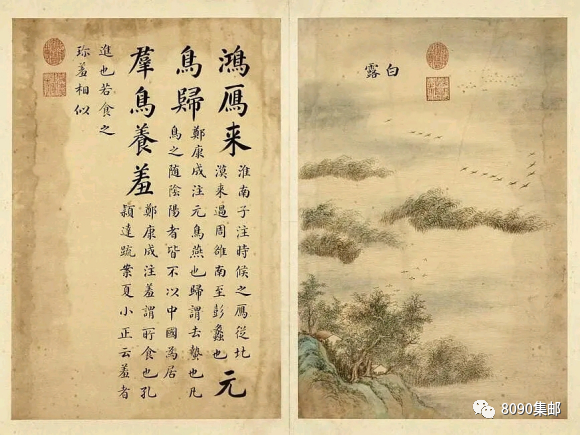 白露
鴻鴈来
淮南子注時候之鴈從北
漠来過周雒南至彭蠡也
元
鳥歸
鄭康成注元鳥燕也歸謂去蟄也凡
鳥之随陰陽者皆不以中國為居
羣鳥養羞
鄭康成注羞謂所食也孔
穎達疏案夏小正云羞者
進也若食之
珎羞相似
8090集邮